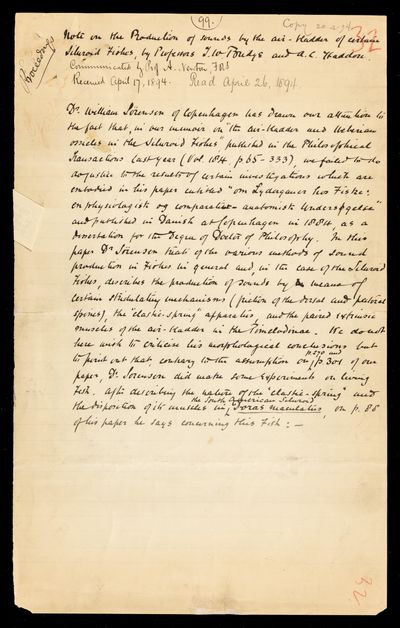 99.
Copy
32
Proceedings
Note on the Production of sounds by the air-bladder of certain
Siluroid Fishes, by Professors T. W. Bridge and A. C. Haddon.
Communicated by Prof. A. Newton, FRS
Received April 17, 1894. Read April 26, 1894
Dr. William Sörensen of Copenhagen has drawn our attention to
the fact that, in our memoir on "the air-bladder and Weberian
ossicles in the Siluroid Fishes" published in the Philosophical
Transactions last year (Vol. 184, p. 65-333), we failed to do
justice to the results of certain investigations which are
embodied in his paper entitled "om Lydorganer hos Fiske:
en physiologisk og comparativ-anatomisk Undersøgelse"
and published in Danish at Copenhagen in 1884, as a
Dissertation for the Degree of Doctor of Philosophy. In this
paper Dr Sörensen treats of the various methods of sound
production in Fishes in general and, in the case of the Siluroid
Fishes, describes the production of sounds by means of
certain stridulating mechanisms (friction of the dorsal and pectoral
spines), the "elastic-spring" apparatus, and the paired extrinsic
muscles of the air-bladder in the Pimelodinae. We do not
here wish to criticise his morphological conclusions but
to point out that, contrary to the assumption on p. 270 and p. 301 of our
paper, Dr. Sorensen did make some experiments on living
Fish. After describing the nature of the "elastic-spring" and
the disposition of its muscles in the South American Siluroid, Doras maculatus, on p. 86
of his paper he says concerning this Fish: —
32